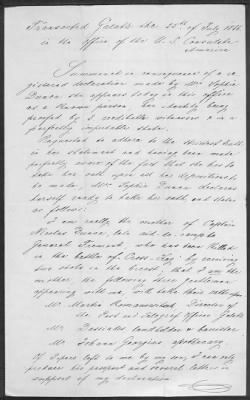 Transacted Galatz the 25th of July 186
in the office of the U. S. Consulate
America
Summoned in consequence of a re
gistered declaration made by Mrs Sophie
Dunca she appears today in the office
as a known person. Her identity being
proofed by 2 creditable witnesses & in a
perfectly imputable state.
Requested to adhere to the strictest truth
in her statement and having been made
perfectly aware of the fact that she has to
take her oath upon all her depositions to
be made, Mrs Sophie Dunca declares
herself ready to take her oath and states
as follows:
I am really the mother of Captain
Nicolas Dunca, late aid-de-camp to
General Fremont, who has been killed
in the battle of Cross-Keys by receiving
two shots in the breast; that I am the
mother, the following three gentlemen
appearing with me, will take their oath upon
Mr. Director of
the Post and Telegraf Office Galatz
Mr. landholder & banister
Mr. Johann Georgius apothecary.
If papers left to me by my son, I can only
produce his passport and several letters in
support of my declaration